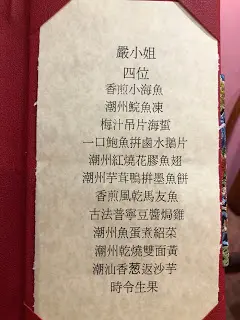 嚴小姐
四位
香煎小海魚
潮州鯇魚凍
梅汁吊片海蜇
一口鮑魚拼鹵水鵝片
潮州紅燒花膠魚翅
潮州芋茸鴨拼墨魚餅
香煎風乾馬友魚
古法普寧豆醬焗雞
潮州魚蛋煮紹菜
潮州乾燒雙面黃
潮汕香葱返沙芋
時令生果